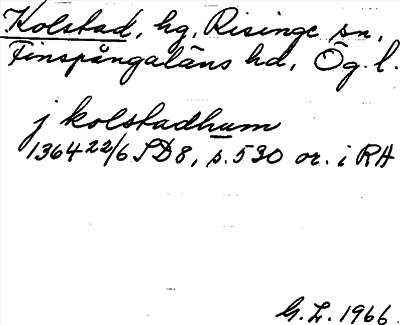 Kolstad, hg, Risinge sn,
Finspångaläns hd, Ög. l.
j kolstadhum
1364 22/6 SD8, s. 530 or. i RA
G. L. 1966.